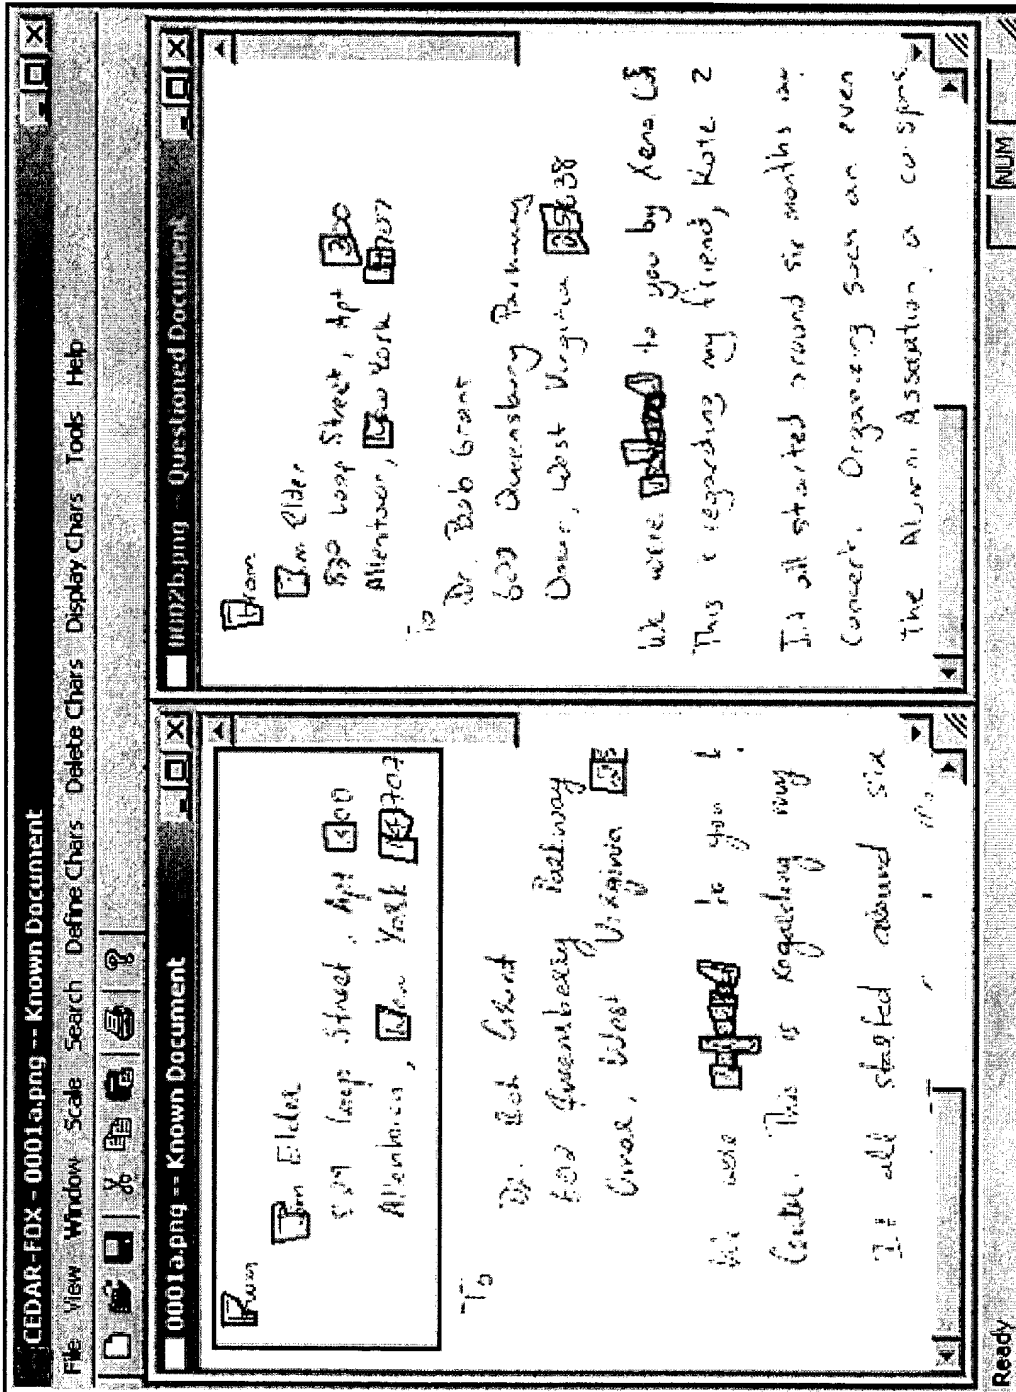 CEDAR-FOX - 0001a.png -- Known Document
File View Window Scale Search Define Chars Delete Chars Display Chars Tools Help
0001a.png -- Known Document
From
Jim Elder
829 Loop Street, Apt 300
Allentown, New York 14707
To
Dr. Bob Grant
602 Queensberry Parkway
Omar, West Virginia 25
We were referred to you b
Center. This is regarding my
It all started around six
0002b.png -- Questioned Document
From
Jim Elder
829 Loop Street, Apt 300
Allentown, New York 14707
To
Dr. Bob Grant
602 Queensberry Parkway
Omar, West Virginia 25638
We were referred to you by Xena
This is regarding my friend, Kate
It all started around six months
Concert. Organizing such an even
The Alumni Association
Ready
NUM